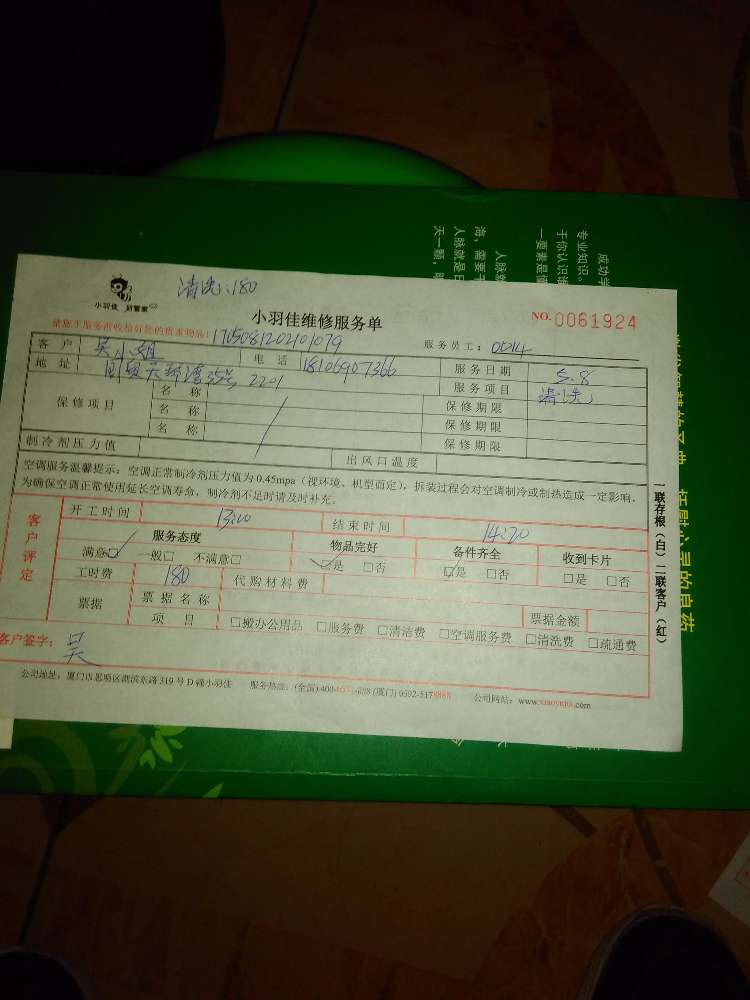 清洗：180
小羽佳 好管家
小羽佳维修服务单
NO.0061924
请您于服务前收拾好您的贵重物品！
170508120210 1079
服务员工：
客户 吴小姐 电话 18106907366 服务日期 5.8
地址 国贸天琴湾35号,2201 服务项目 清洗
保修项目 名称 保修期限
名称 保修期限
名称 保修期限
制冷剂压力值 出风口温度
空调服务温馨提示：空调正常制冷剂压力值为0.45mpa（视环境、机型而定），拆装过程会对空调制冷或制热造成一定影响，
为确保空调正常使用延长空调寿命，制冷剂不足时请及时补充。
客户评定
开工时间 13:00 结束时间 14:20
服务态度 物品完好 备件齐全 收到卡片
满意□ 一般□ 不满意□ □是 □否 □是 □否 □是 □否
工时费 180 代购材料费
票据 票据名称 票据金额
项目 □搬办公用品 □服务费 □清洁费 □空调服务费 □清洗费 □疏通费
客户签字：吴
公司地址：厦门市思明区湖滨东路319号D幢小羽佳 服务热线：(全国) (厦门) 0592-5178888 公司网站：www.xiaoyujia.com
一联存根（白）二联客户（红）
成功学
专业知识。
于你认识谁
一要素是值
人脉就
海，需要
人脉就是日
天一颗，